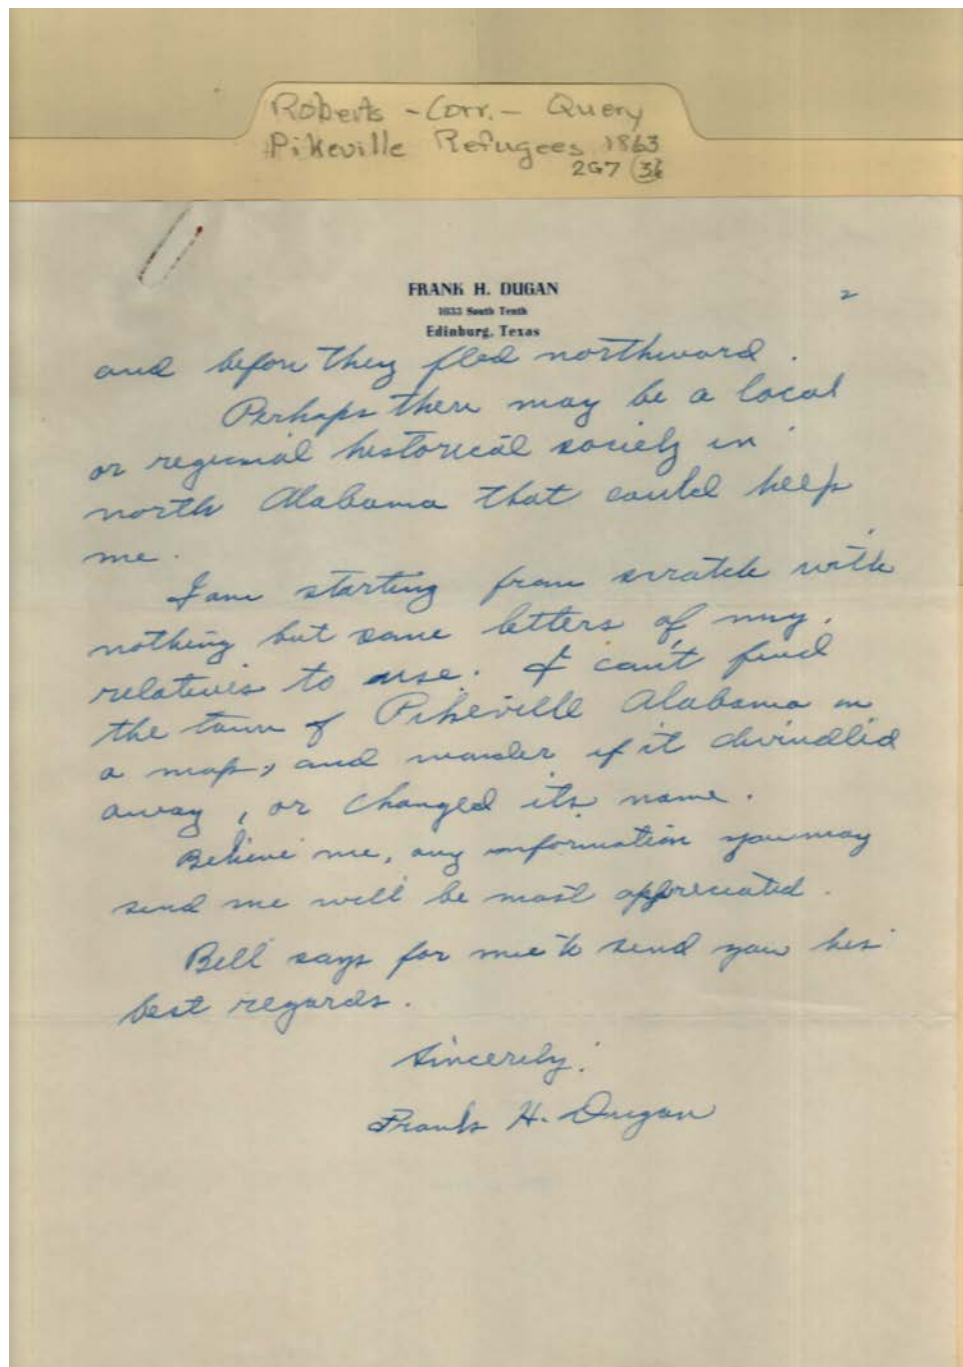 Roberts - Corr. - Query
Pikeville Refugees 1863
2G7
FRANK H. DUGAN
1033 South Tenth
Edinburg, Texas
2
and before they fled northward.
Perhaps there may be a local
or regional historical society in
north Alabama that could help
me.
I am starting from scratch with
nothing but some letters of my
relatives to use. I can't find
the town of Pikeville Alabama on
a map, and wonder if it dwindled
away, or changed its name.
Believe me, any information you may
send me will be most appreciated.
Bill says for me to send you his
best regards.
Sincerely,
Frank H. Dugan